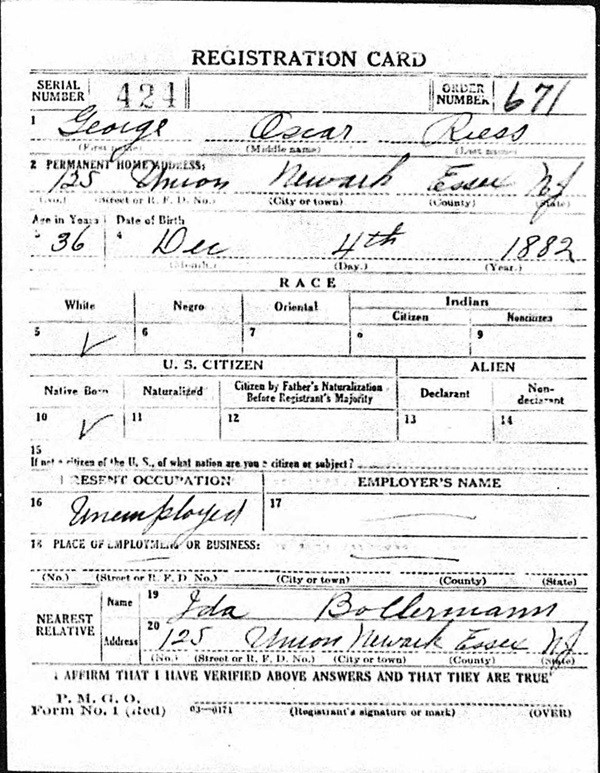 REGISTRATION CARD
SERIAL NUMBER 424 ORDER NUMBER 671
1 George Oscar Riess
(First name) (Middle name) (Last name)
2 PERMANENT HOME ADDRESS:
125 Union Newark Essex NJ
(No.) (Street or R. F. D. No.) (City or town) (County) (State)
Age in Years Date of Birth
3 36 4 Dec 4th 1882
(Month.) (Day.) (Year.)
RACE
White Negro Oriental Indian
Citizen Noncitizen
5 ✓ 6 7 8 9
U. S. CITIZEN ALIEN
Native Born Naturalized Citizen by Father's Naturalization Before Registrant's Majority Declarant Non-declarant
10 ✓ 11 12 13 14
15
If not a citizen of the U. S., of what nation are you a citizen or subject?
PRESENT OCCUPATION EMPLOYER'S NAME
16 Unemployed 17
18 PLACE OF EMPLOYMENT OR BUSINESS:
(No.) (Street or R. F. D. No.) (City or town) (County) (State)
NEAREST RELATIVE Name 19 Ida Bollermann
Address 20 125 Union Newark Essex NJ
(No.) (Street or R. F. D. No.) (City or town) (County) (State)
I AFFIRM THAT I HAVE VERIFIED ABOVE ANSWERS AND THAT THEY ARE TRUE
P. M. G. O.
Form No. 1 (Red) 03—6171 (Registrant's signature or mark) (OVER)